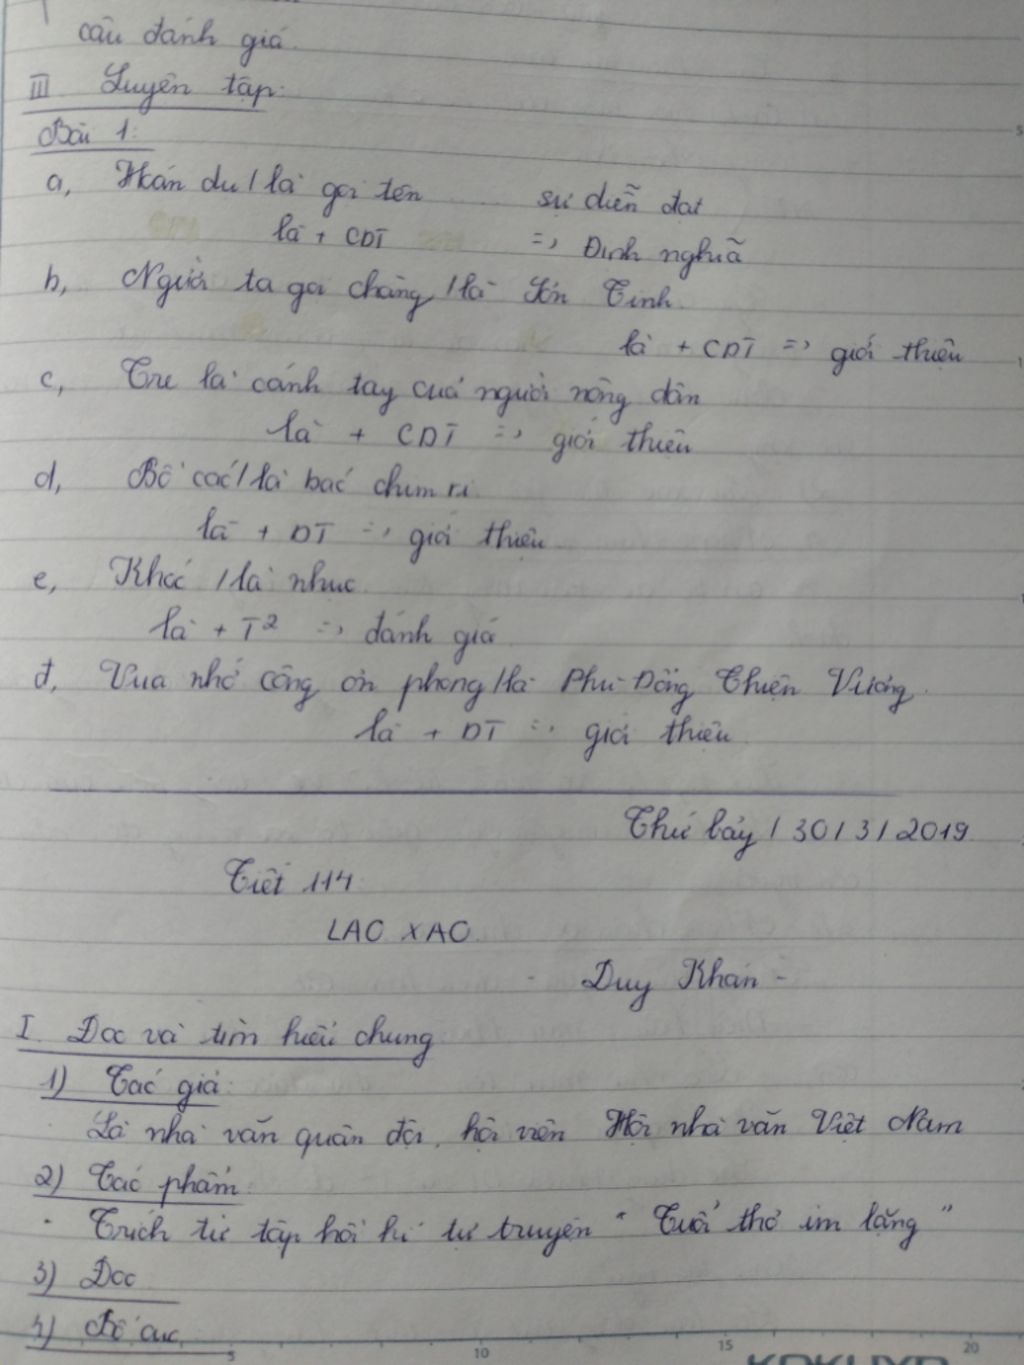 câu đánh giá.
III Luyện tập:
Bài 1:
a, Hoán dụ / là gọi tên ...... sự diễn đạt
là + CDT => Định nghĩa
b, Người ta gọi chàng / là Sơn Tinh.
là + CDT => giới thiệu
c, Tre là cánh tay của người nông dân
là + CDT => giới thiệu
d, Bồ các / là bác chim ri
là + DT => giới thiệu
e, Khóc / là nhục
là + T² => đánh giá
đ, Vua nhớ công ơn phong / là Phù Đổng Thiên Vương.
là + DT => giới thiệu
Thứ bảy / 30 / 3 / 2019
Tiết 114:
LAO XAO
- Duy Khán -
I. Đọc và tìm hiểu chung
1) Tác giả:
Là nhà văn quân đội, hội viên Hội nhà văn Việt Nam
2) Tác phẩm:
- Trích từ tập hồi kí tự truyện "Tuổi thơ im lặng"
3) Đọc
4) Bố cục
5 10 15 20
KOKUYO